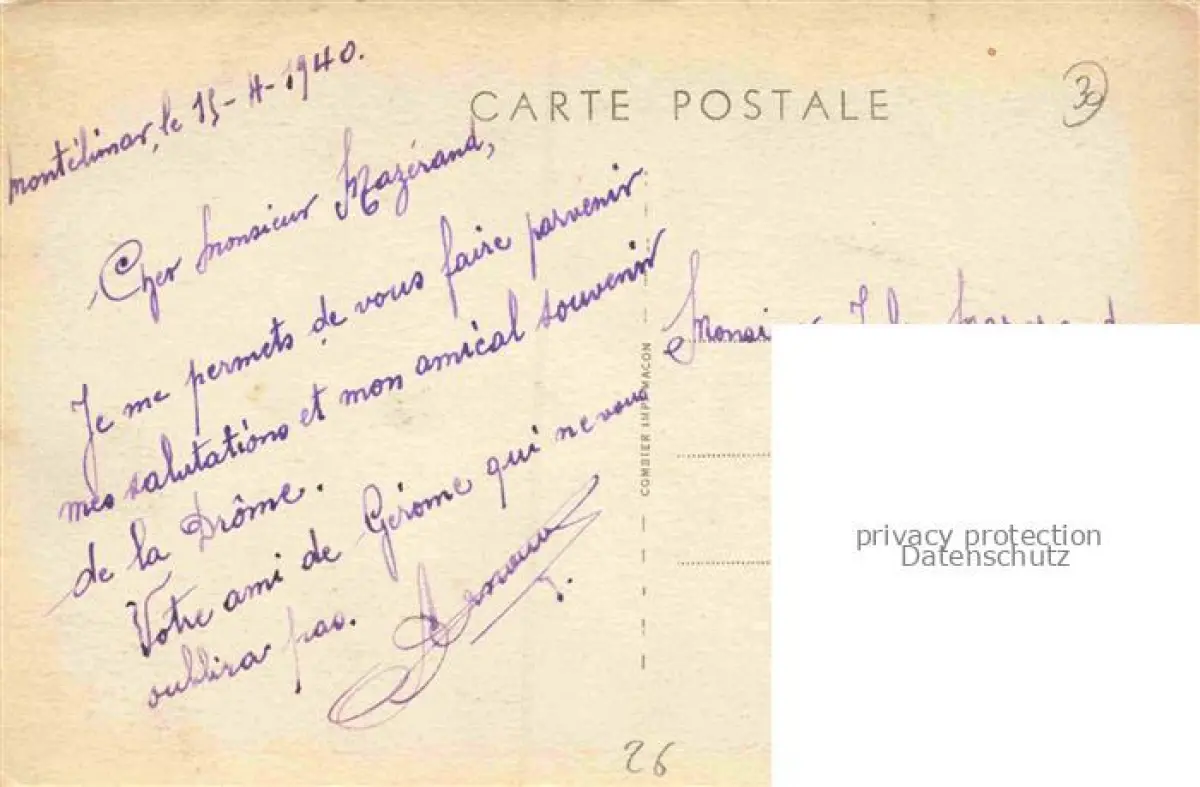 Montélimar, le 15-4-1940.
CARTE POSTALE
30
Cher Monsieur Mazérand,
Je me permets de vous faire parvenir
mes salutations et mon amical souvenir
de la Drôme.
Votre ami de Gérome qui ne vous
oublira pas.
COMBIER IMP. MACON
privacy protection
Datenschutz
26